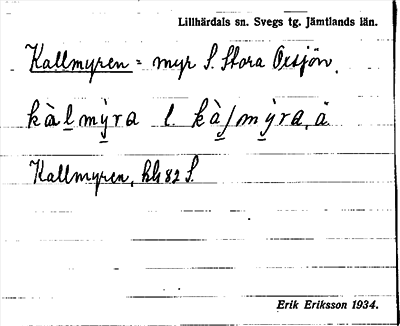 Lillhärdals sn. Svegs tg. Jämtlands län.
Kallmyren = myr S. Stora Öxsjön.
kàlmỳra l. kà/mỳra, ä
Kallmyren, hh 82 S.
Erik Eriksson 1934.